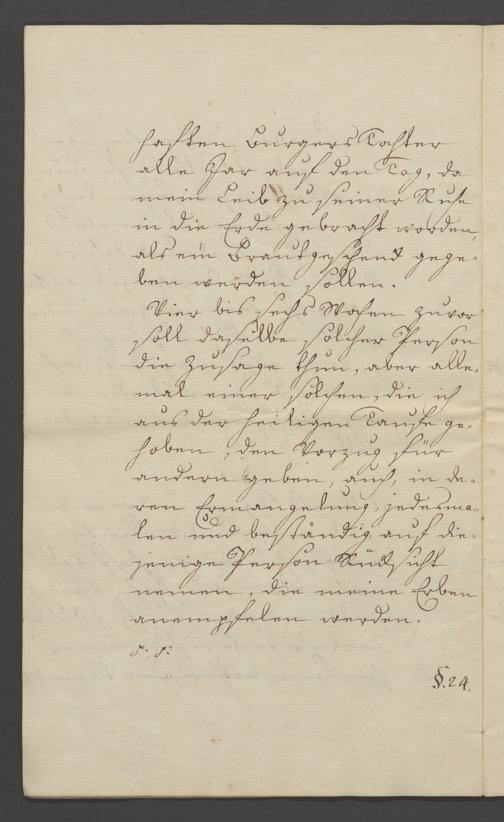 haften Burgers Tochter
alle Jar auf den Tag, da
mein Leib zu seiner Ruhe
in die Erde gebracht worden,
als ein Brautgeschenk gege-
ben werden sollen.
Vier bis sechs Wochen zuvor
soll daselbe solcher Person
die Zusage thun, aber alle-
mal einer solchen, die ich
aus der heiligen Taufe ge-
hoben, den Vorzug für
andern geben, auch, in de-
ren Ermangelung, jedesma-
len und beständig auf die-
jenige Person Rücksicht
nemen, die meine Erben
anempfelen werden.
§. 24.